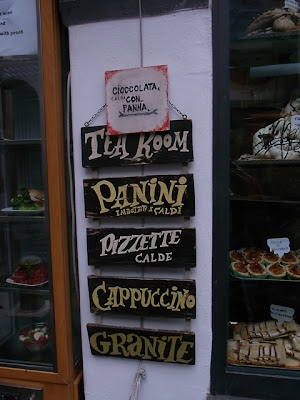 CIOCCOLATA
CALDA
CON
PANNA
TEA ROOM
PANINI
IMBOTTITI CALDI
PIZZETTE
CALDE
CAPPUCCINO
GRANITE